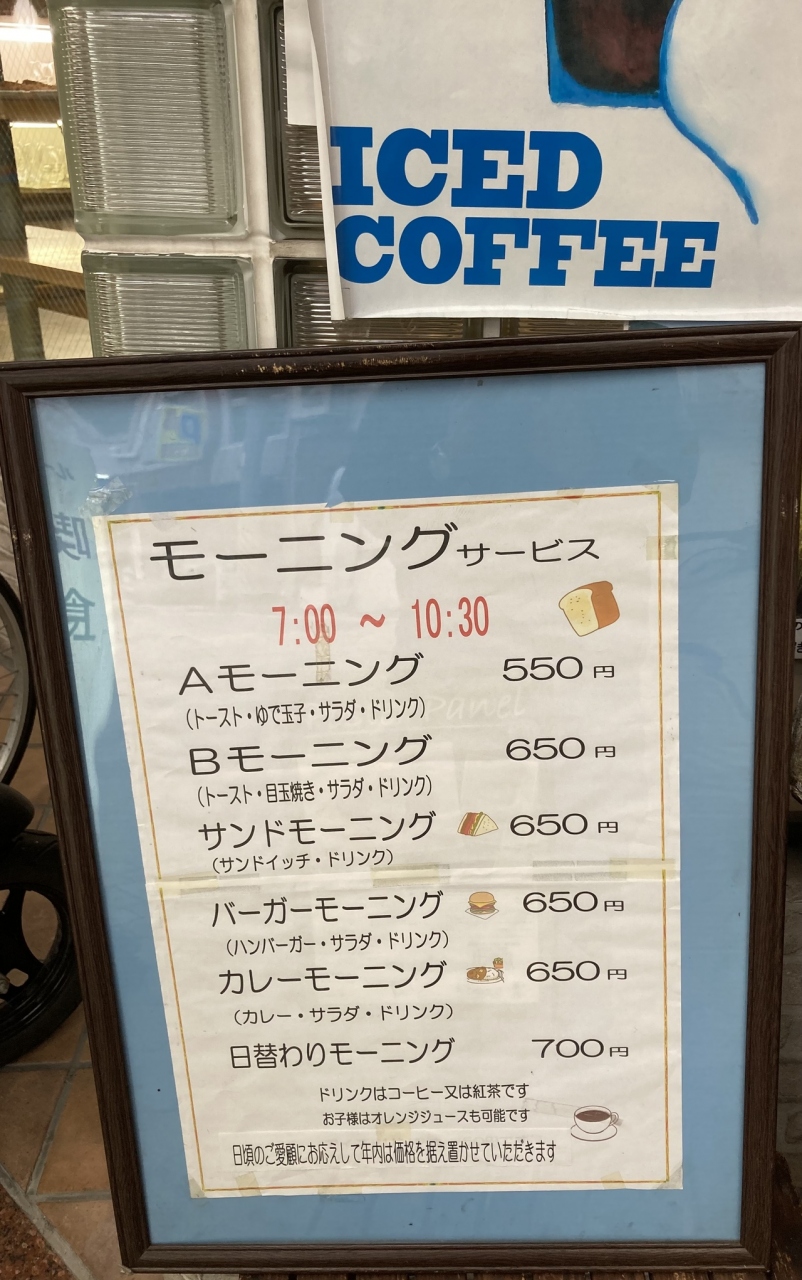 ICED
COFFEE
モーニングサービス
7:00 ~ 10:30
Aモーニング 550円
(トースト・ゆで玉子・サラダ・ドリンク)
Bモーニング 650円
(トースト・目玉焼き・サラダ・ドリンク)
サンドモーニング 650円
(サンドイッチ・ドリンク)
バーガーモーニング 650円
(ハンバーガー・サラダ・ドリンク)
カレーモーニング 650円
(カレー・サラダ・ドリンク)
日替わりモーニング 700円
ドリンクはコーヒー又は紅茶です
お子様はオレンジジュースも可能です
日頃のご愛顧にお応えして年内は価格を据え置かせていただきます